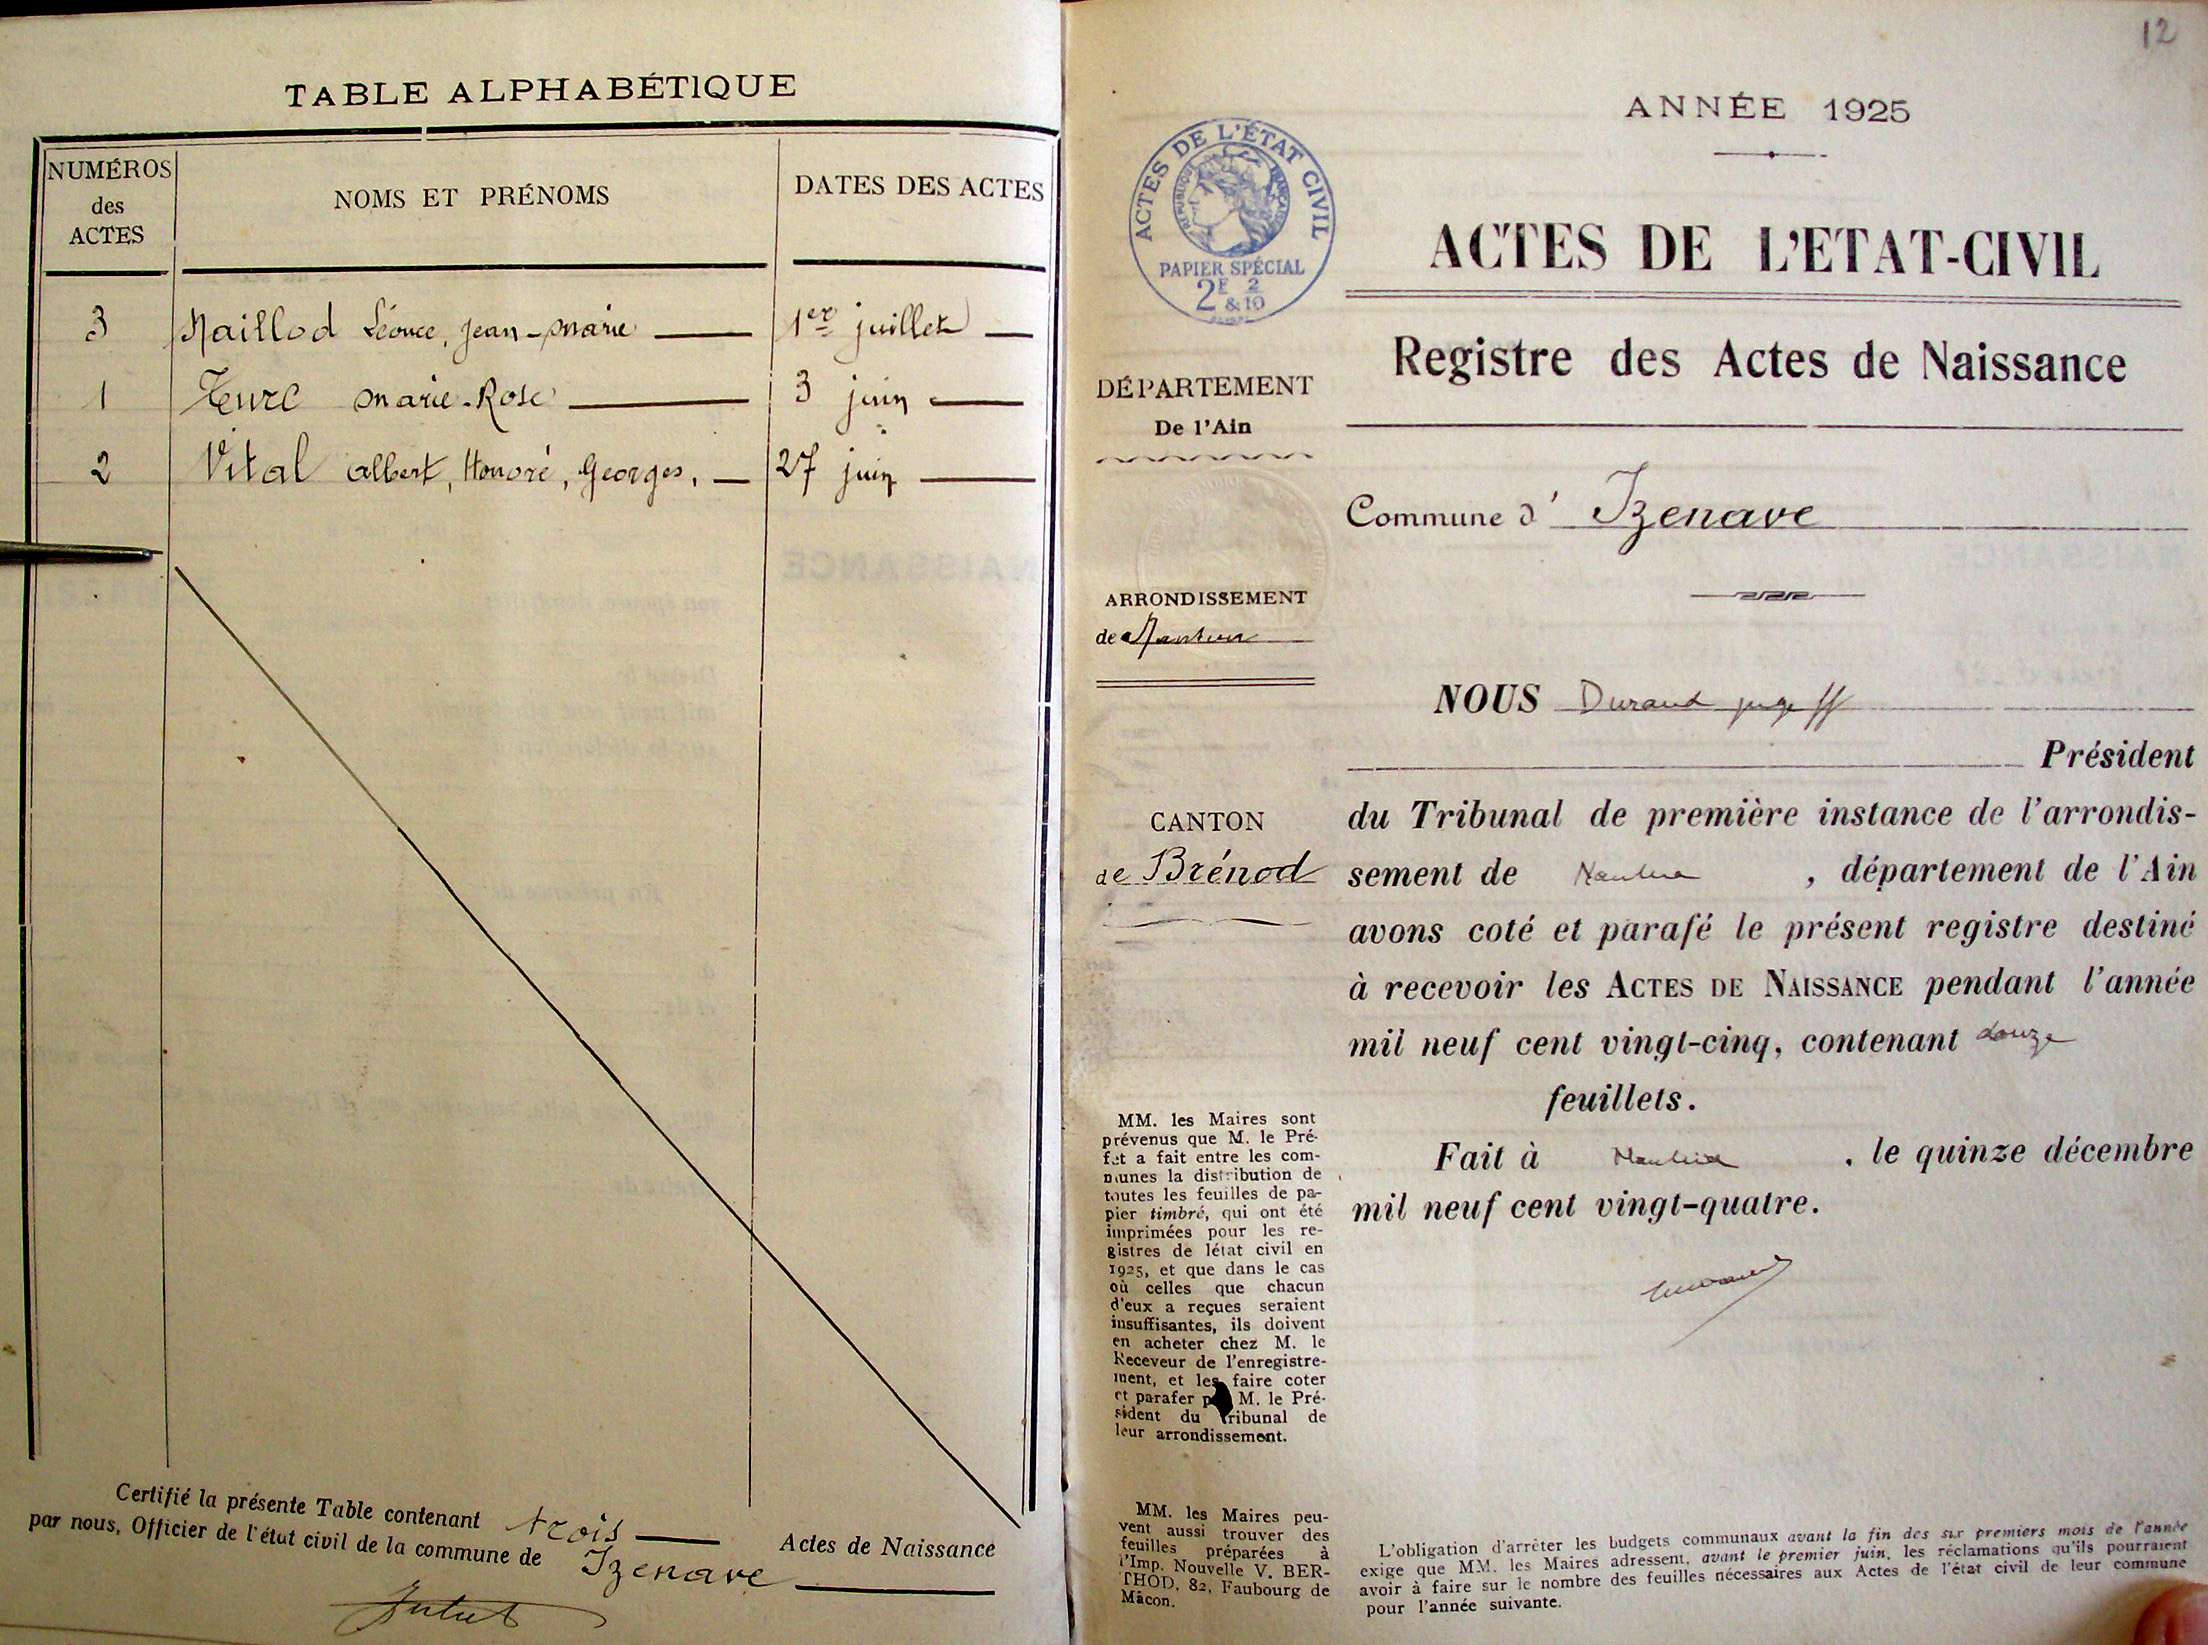 TABLE ALPHABÉTIQUE
NUMÉROS
des
ACTES
NOMS ET PRÉNOMS
DATES DES ACTES
3 Maillod Léonce, Jean-Marie 1er juillet
1 Marie-Rose 3 juin
2 Vital Albert, Honoré, Georges, 27 juin
Certifié la présente Table contenant trois Actes de Naissance
par nous, Officier de l'état civil de la commune de Izenave
12
ANNÉE 1925
ACTES DE L'ÉTAT CIVIL
RÉPUBLIQUE FRANÇAISE
PAPIER SPÉCIAL
2E 2
&10
ACTES DE L'ETAT-CIVIL
Registre des Actes de Naissance
DÉPARTEMENT
De l'Ain
Commune d' Izenave
ARRONDISSEMENT
de Nantua
NOUS Durand juge ff
Président
du Tribunal de première instance de l'arrondis-
sement de Nantua, département de l'Ain
avons coté et parafé le présent registre destiné
à recevoir les ACTES DE NAISSANCE pendant l'année
mil neuf cent vingt-cinq, contenant douze
feuillets.
Fait à Nantua, le quinze décembre
mil neuf cent vingt-quatre.
CANTON
de Brénod
MM. les Maires sont
prévenus que M. le Pré-
fet a fait entre les com-
munes la distribution de
toutes les feuilles de pa-
pier timbré, qui ont été
imprimées pour les re-
gistres de létat civil en
1925, et que dans le cas
où celles que chacun
d'eux a reçues seraient
insuffisantes, ils doivent
en acheter chez M. le
Receveur de l'enregistre-
ment, et les faire coter
et parafer p M. le Pré-
sident du Tribunal de
leur arrondissement.
MM. les Maires peu-
vent aussi trouver des
feuilles préparées à
l'Imp. Nouvelle V. BER-
THOD, 82, Faubourg de
Mâcon.
L'obligation d'arrêter les budgets communaux avant la fin des six premiers mois de l'année
exige que MM. les Maires adressent, avant le premier juin, les réclamations qu'ils pourraient
avoir à faire sur le nombre des feuilles nécessaires aux Actes de l'état civil de leur commune
pour l'année suivante.